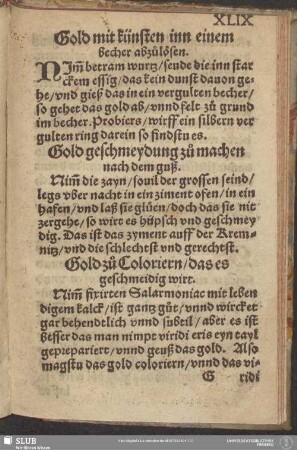 XLIX
Gold mit künsten inn einem
becher abzůlösen.
NIm̃ betram wurtz/seude die inn star
ckem essig/das kein dunst dauon ge-
he/vnd gieß das in ein vergulten becher/
so gehet das gold ab/vnnd felt zů grund
im becher. Probiers/wirff ein silbern ver
gulten ring darein so findstu es.
Gold geschmeydung zů machen
nach dem guß.
Nim̃ die zayn/souil der grossen seind/
legs vber nacht in ein ziment ofen/in ein
hafen/vnd laß sie glüen/doch das sie nit
zergehe/so wirt es hüpsch vnd geschmey
dig. Das ist das zyment auff der Krem-
nitz/vnd die schlechtst vnd gerechtst.
Gold zů Coloriern/das es
geschmeidig wirt.
Nim̃ fixirten Salarmoniac mit leben
digem kalck/ist gantz gůt/vnnd wircket
gar behendtlich vnnd subtil/aber es ist
besser das man nimpt viridi eris eyn tayl
geprepariert/vnnd geuß das gold. Also
magstu das gold coloriern/vnnd das vi-
G ridi
SLUB
Wir führen Wissen.